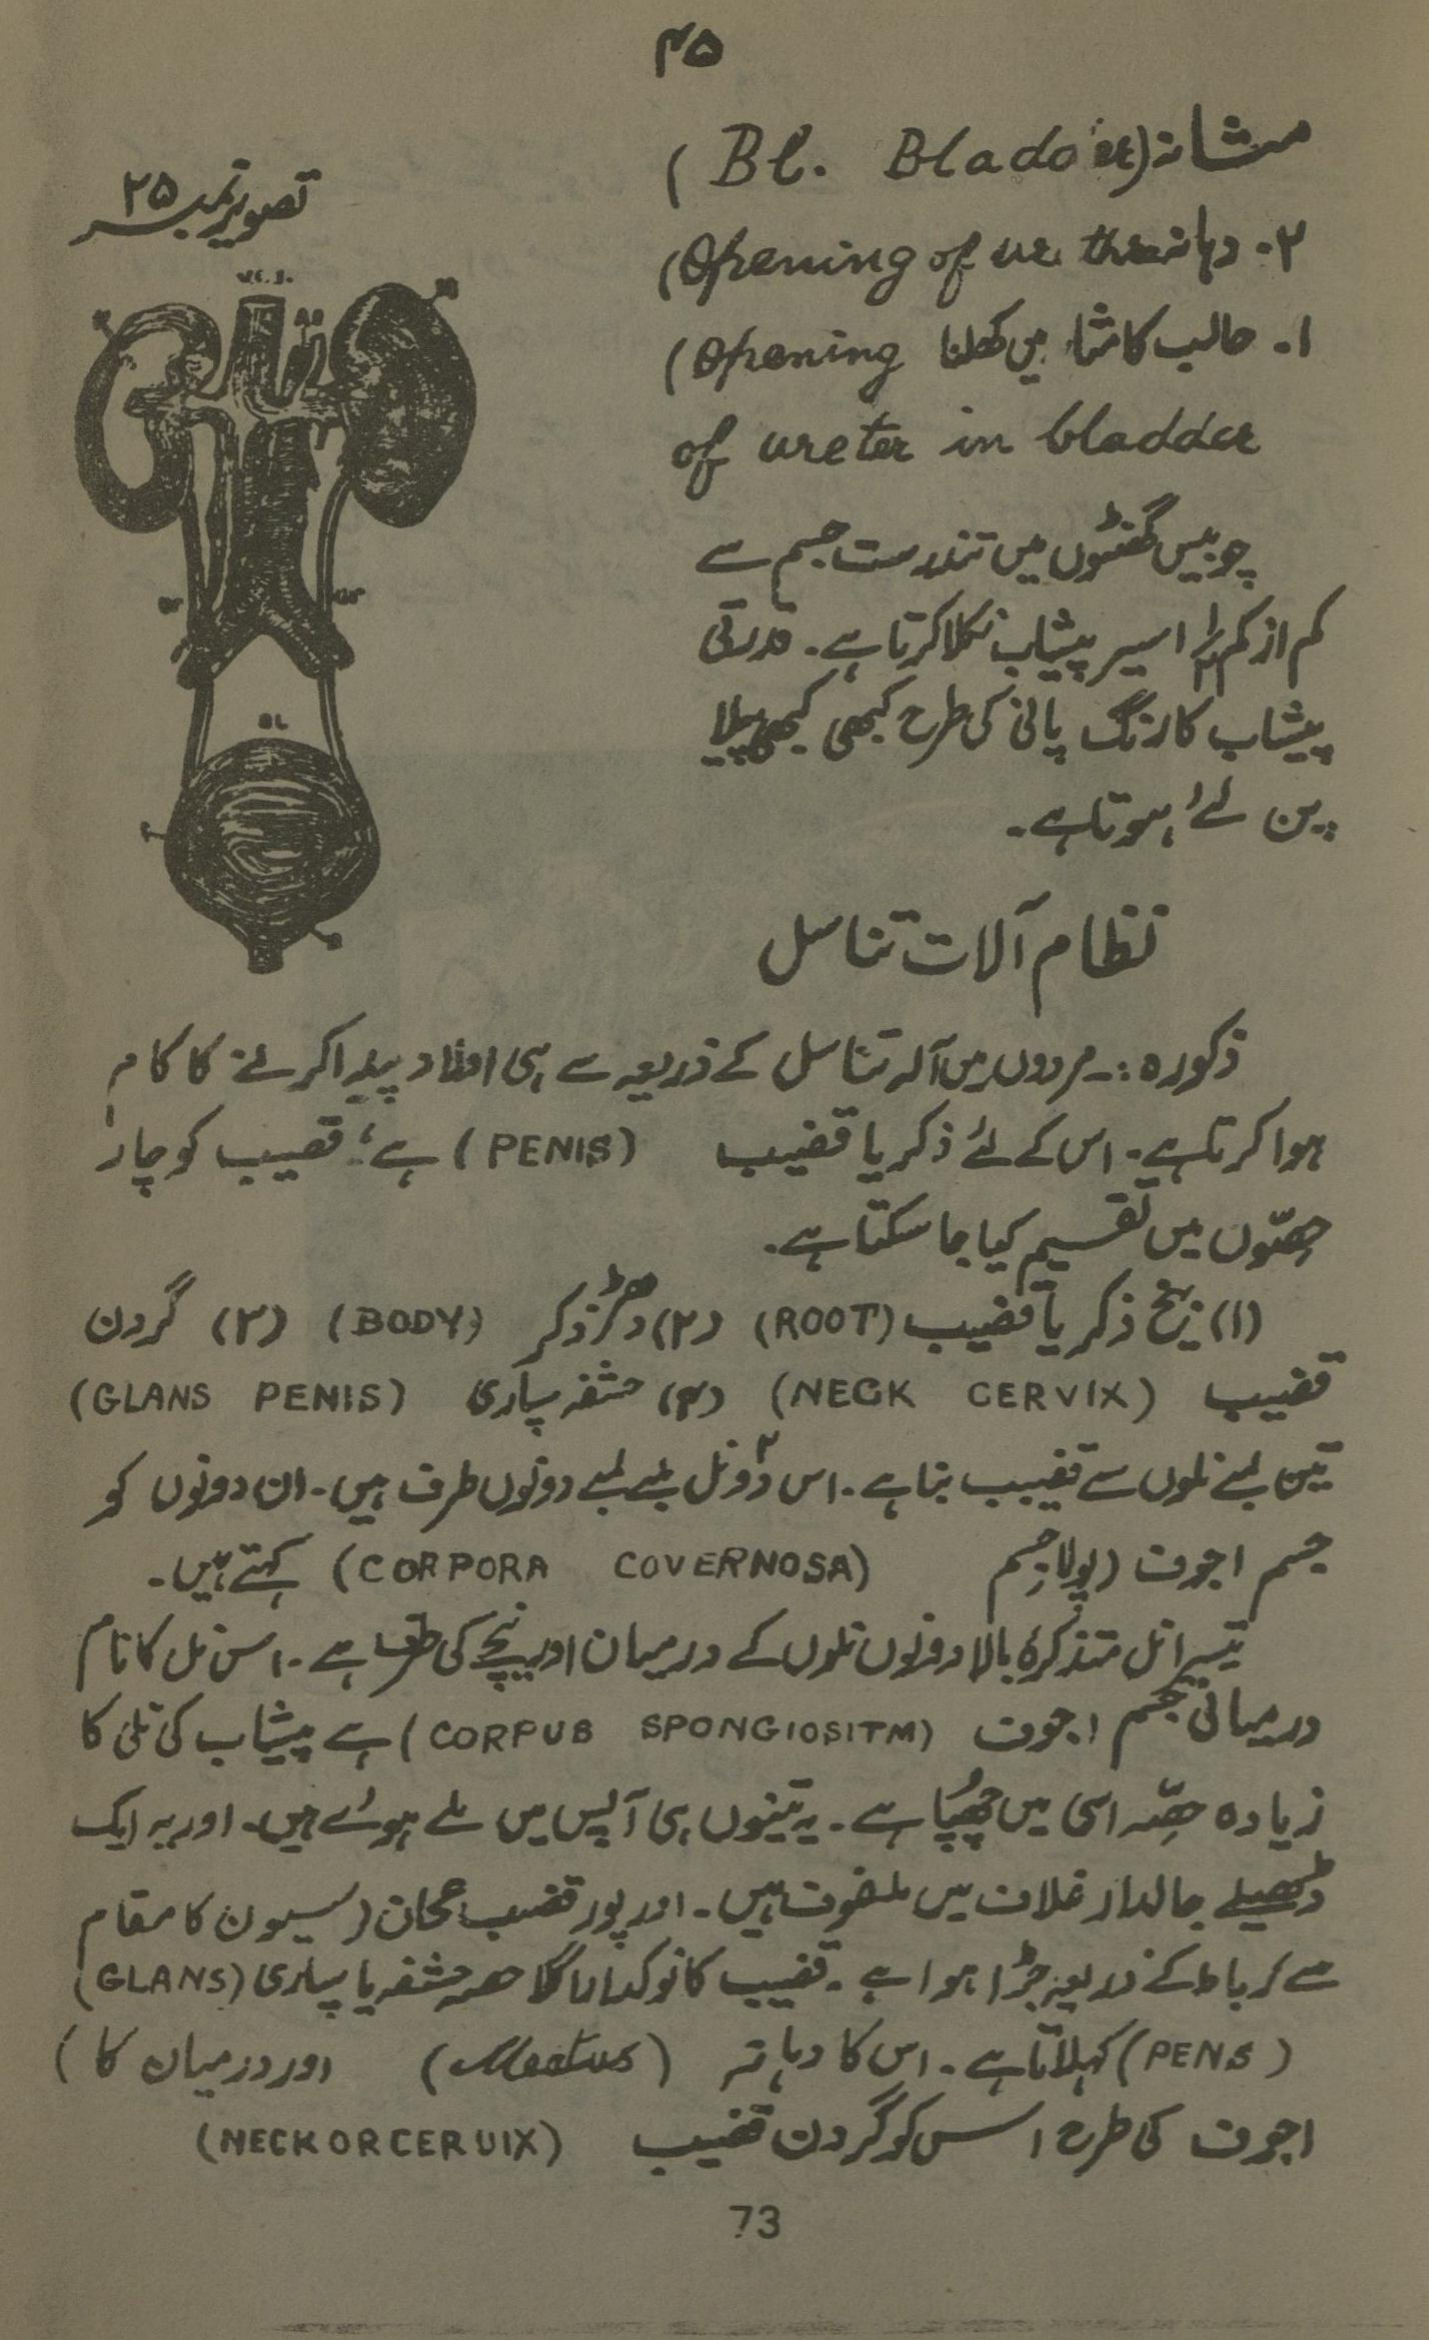 ۴۵
مثانہ (Bl. Bladder)
تصویر نمبر ۲۵
۲۔ دہانہ (Opening of ure thra
۱۔ حالب کا مثا میں کھلنا (Opening
of ureter in bladder
چوبیس گھنٹوں میں تندرست جسم سے
کم از کم ۱ ۱/۲ سیر پیشاب نکلا کرتا ہے۔ قدرتی
پیشاب کا رنگ پانی کی طرح کبھی کبھی پیلا
پن لئے ہوتا ہے۔
V.C.I.
UR
UR
BL
نظام آلات تناسل
ذکورہ :۔ مردوں میں آلہ تناسل کے ذریعہ سے ہی اولاد پیدا کرنے کا کام
ہوا کرتا ہے۔ اس کے لئے ذکر یا قضیب (PENIS) ہے؛ قضیب کو چار
حصّوں میں تقسیم کیا جا سکتا ہے۔
(۱) بیخ ذکر یا قضیب (ROOT) (۲) دھڑ ذکر (BODY) (۳) گردن
قضیب (NECK CERVIX) (۴) حشفہ سپاری (GLANS PENIS)
تین لمبے نلوں سے قضیب بنا ہے۔ اس دو۲ نل لمبے لمبے دونوں طرف ہیں۔ ان دونوں کو
جسم اجوف (پولا جسم (CORPORA COVERNOSA) کہتے ہیں۔
تیسرا نل متذکرۂ بالا دونوں نلوں کے درمیان اور نیچے کی طرف ہے۔ اس نل کا نام
درمیانی جسم اجوف (CORPUS SPONGIOSITM) ہے پیشاب کی نلی کا
زیادہ حصّہ اسی میں چھُپا ہے۔ یہ تینوں ہی آپس میں ملے ہوئے ہیں۔ اور یہ ایک
ڈھیلے جالدار غلاف میں ملفوف ہیں۔ اور پور قضیب عجان (سیون کا مقام
سے کر باط کے ذریعہ جڑا ہوا ہے۔ قضیب کا نوکدار اگلا حصہ حشفہ یا سپاری (GLANS)
(PENS) کہلاتا ہے۔ اس کا دہانہ (Meatus) اور درمیان کا (
اجوف کی طرح اس کو گردن قضیب (NECK OR CERUIX)
73